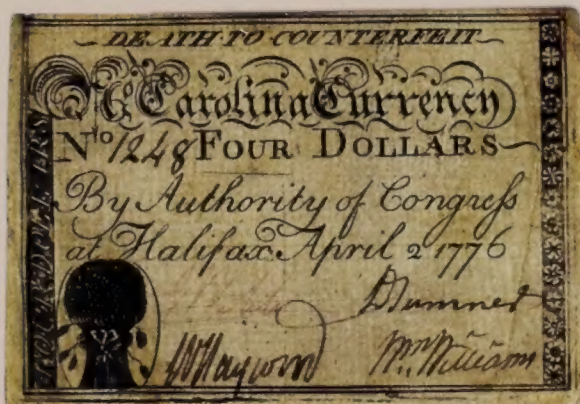 DEATH TO COUNTERFEIT
No. Carolina Currency
No 1248 FOUR DOLLARS
By Authority of Congress
at Halifax April 2 1776
FOUR DOLLARS
Sumner
W Haywood
Wm. Williams